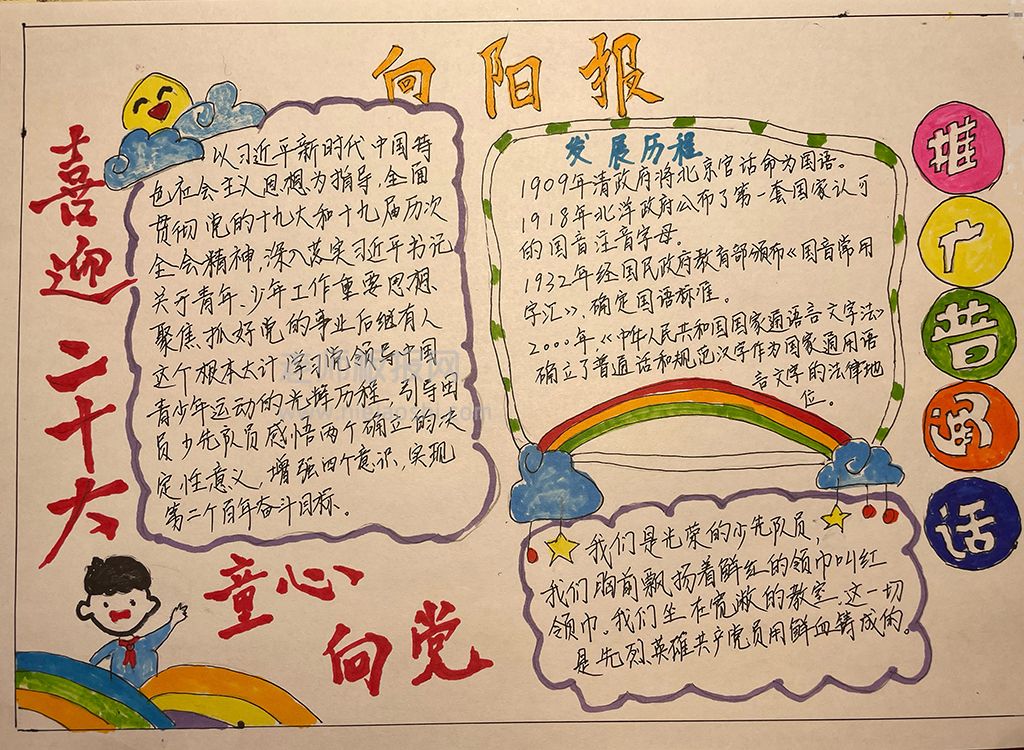 向阳报
喜迎二十大
以习近平新时代中国特
色社会主义思想为指导,全面
贯彻党的十九大和十九届历次
全会精神,深入落实习近平书记
关于青年、少年工作重要思想、
聚焦抓好党的事业后继有人
这个根本大计学习党领导中国
青少年运动的光辉历程,引导由
员少先队员感悟两个确立的决
定性意义,增强四个意识,实现
第二个百年奋斗目标。
发展历程
1909年清政府将北京官话命为国语。
1918年北洋政府公布了第一套国家认可
的国音注音字母。
1932年经国民政府教育部颁布《国音常用
字汇》,确定国语标准。
2000年,《中华人民共和国国家通语言文字法》
确立了普通话和规范汉字作为国家通用语
言文字的法律地
位。
推广普通话
我们是光荣的少先队员,
我们胸前飘扬着鲜红的领巾叫红
领巾。我们坐在宽敞的教室,这一切
是先烈、英雄共产党员用鲜血铸成的。
童心
向党